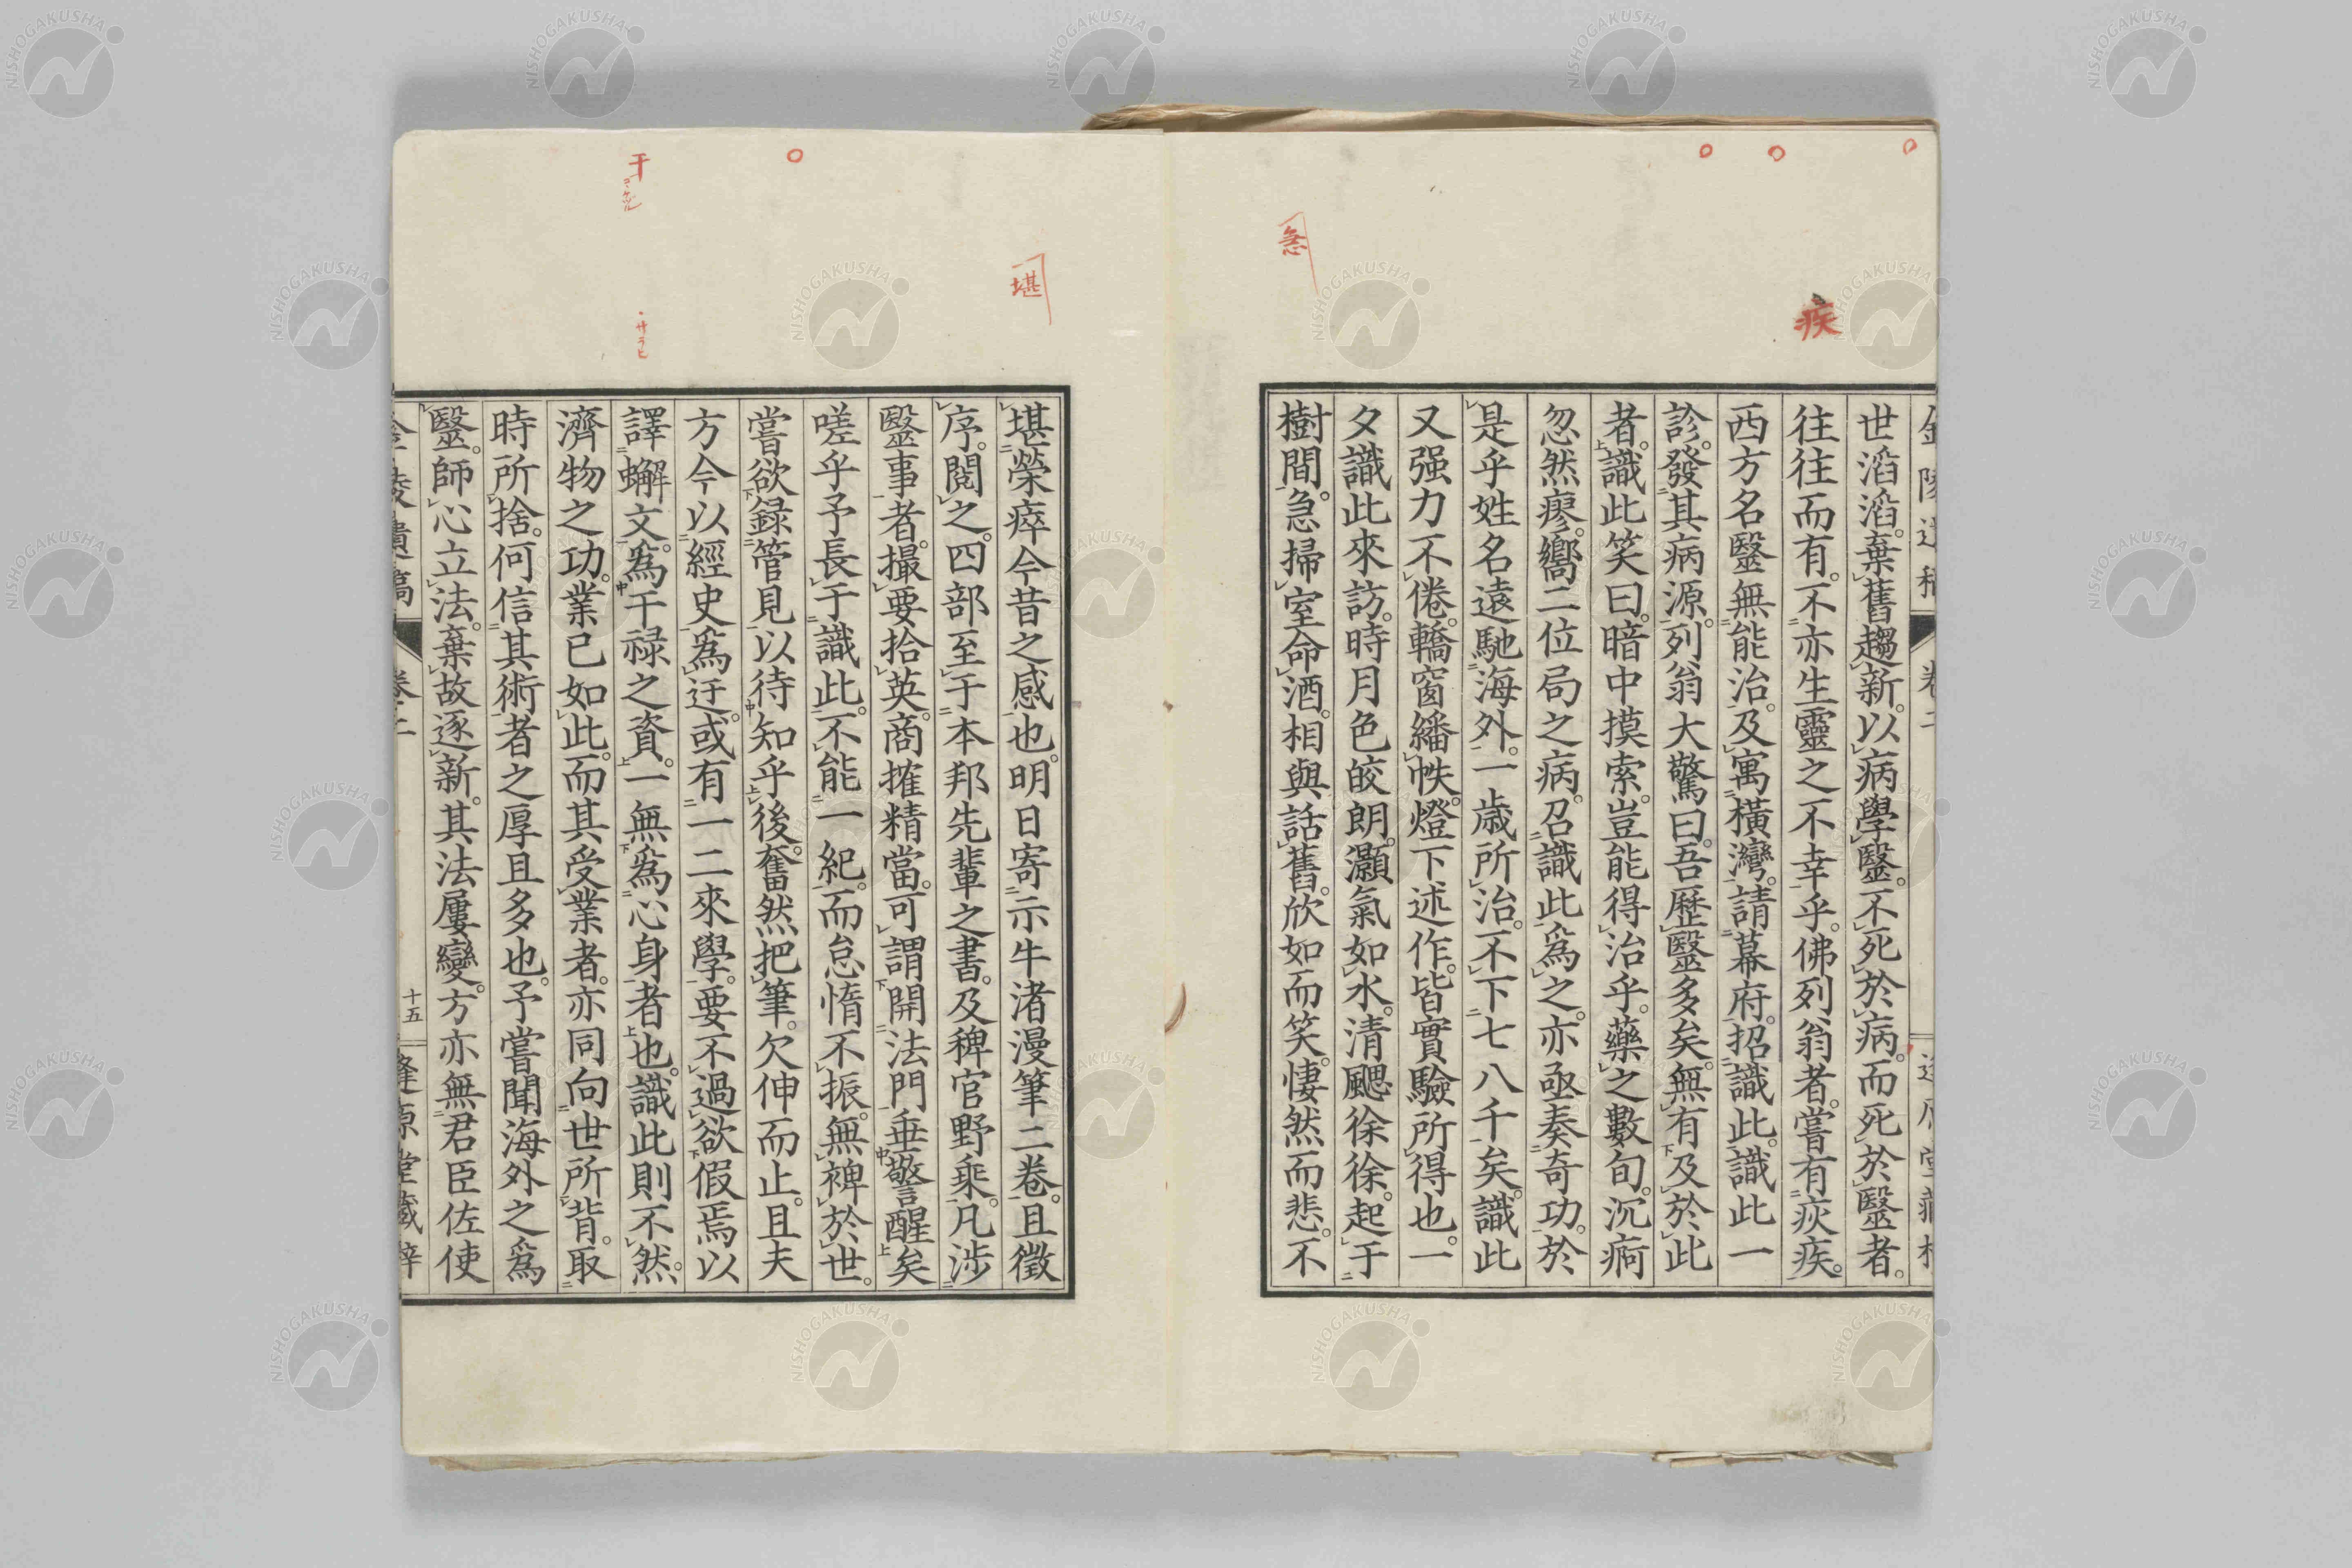 疾
急
世滔滔。棄舊趨新。以病學醫。不死於病。而死於醫者。
往往而有。不亦生靈之不幸乎。佛列翁者。嘗有疢疾。
西方名醫無能治。及寓橫灣。請幕府。招識此。識此一
診。發其病源。列翁大驚曰。吾歷醫多矣。無有及於此
者。識此笑曰。暗中摸索。豈能得治乎。藥之數旬。沉痾
忽然瘳。嚮二位局之病。召識此爲之。亦亟奏奇功。於
是乎姓名遠馳海外。一歲所治。不下七八千矣。識此
又强力不倦。轎窗繙帙。燈下述作。皆實驗所得也。一
夕識此來訪。時月色皎朗。灝氣如水。清颸徐徐。起于
樹間。急掃室命酒。相與話舊。欣如而笑。悽然而悲。不
堪
干
堪榮瘁今昔之感也。明日寄示牛渚漫筆二卷。且徵
序。閱之。四部至于本邦先輩之書。及稗官野乘。凡涉
醫事者。撮要拾英。商搉精當。可謂開法門垂警醒矣
嗟乎予長于識此。不能一紀。而怠惰不振。無裨於世。
嘗欲録管見以待知乎後。奮然把筆。欠伸而止。且夫
方今以經史爲迂。或有一二來學。要不過欲假焉以
譯蠏文。爲干禄之資。一無爲心身者也。識此則不然。
濟物之功。業已如此。而其受業者。亦同向世所背。取
時所捨。何信其術者之厚且多也。予嘗聞海外之爲
醫。師心立法。棄故逐新。其法屢變。方亦無君臣佐使
卷二
十五
逢原堂藏梓